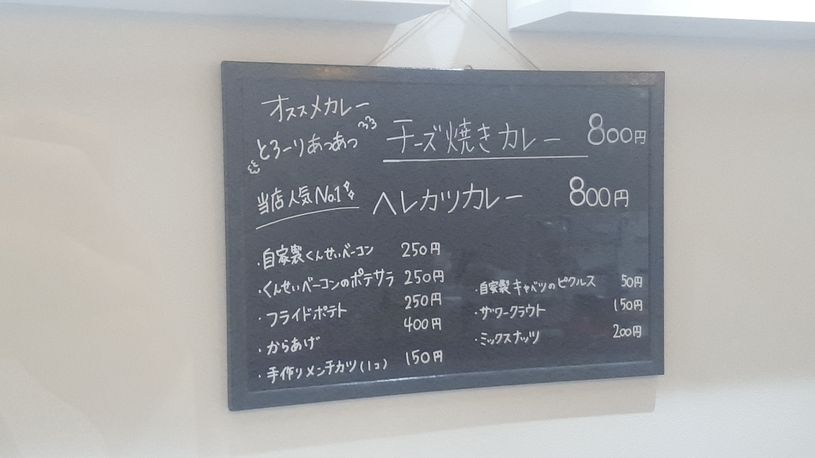 オススメカレー
とろーりあつあつ
チーズ焼きカレー 800円
当店人気No.1
ヘレカツカレー 800円
・自家製くんせいベーコン 250円
・くんせいベーコンのポテサラ 250円
・フライドポテト 250円
・からあげ 400円
・手作りメンチカツ(1コ) 150円
・自家製キャベツのピクルス 50円
・ザワークラウト 150円
・ミックスナッツ 200円